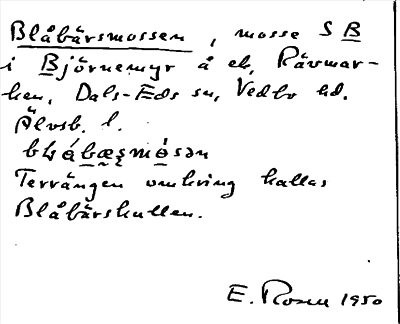 Blåbärsmossen, mosse S B
i Björnemyr å ek, Rävmar-
ken, Dals-Eds sn, Vedbo hd.
Älvsb. l.
Terrängen omkring kallas
Blåbärskullen.
E. Rosen 1950